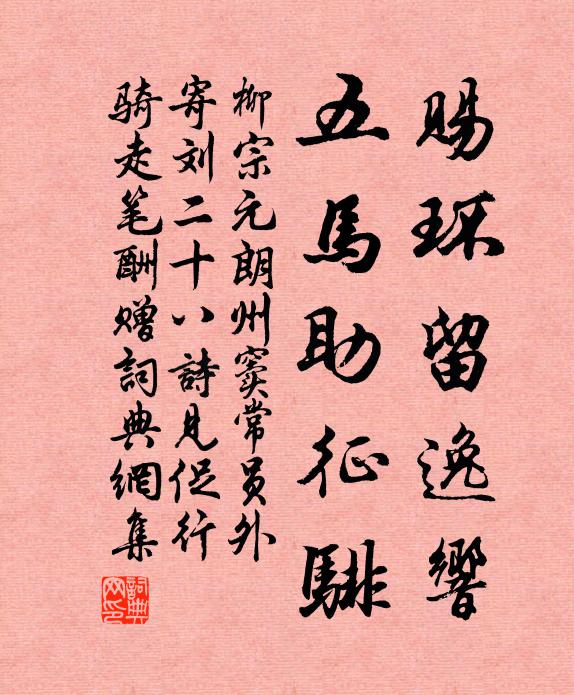 赐环留逸響
五馬助征騑
柳宗元朗州窦常员外
寄刘二十八詩見促行
骑走笔酬赠詞典網集
詞典网印